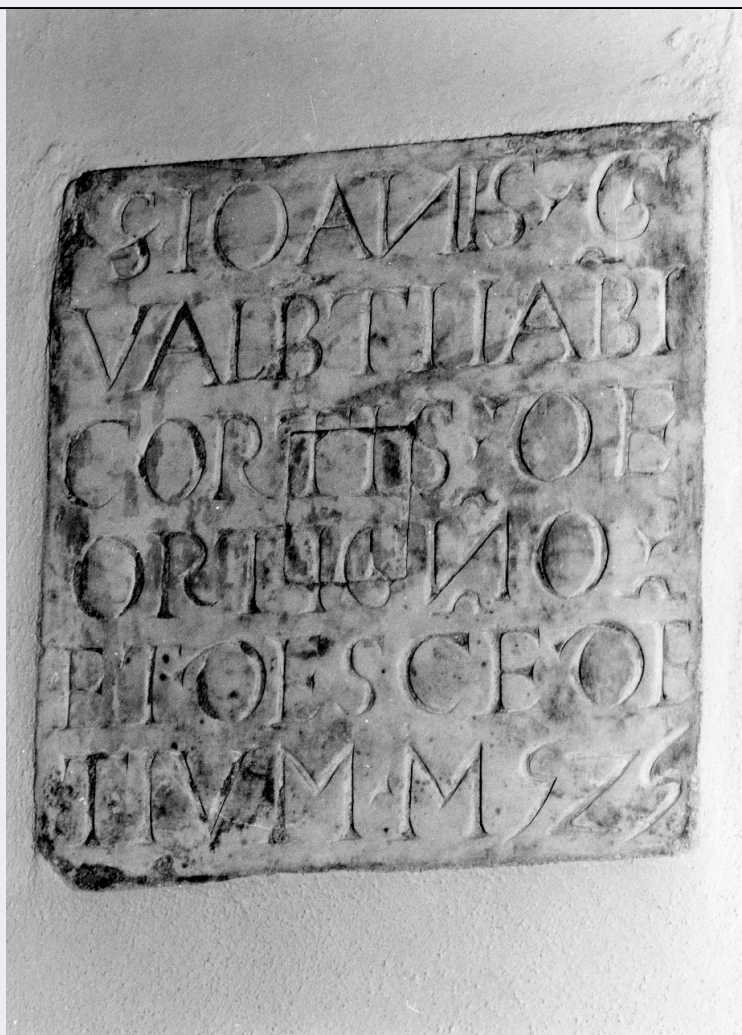 S·IOANIS·G
VALBTIIABI
CORTIS·OE
ORTIGNO·
ET·OES·CE·OE
TIVM·M 525